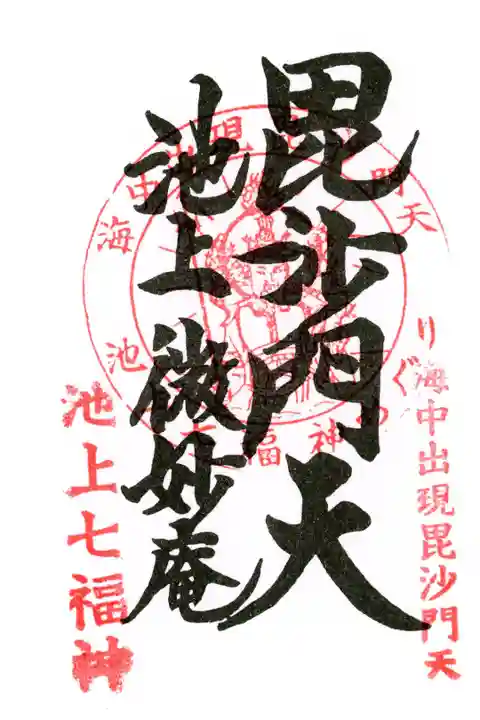 海中出現毘沙門天
毘沙門天
池上 微妙庵
池上七福神
海中出現
門天
池
七福神めぐり